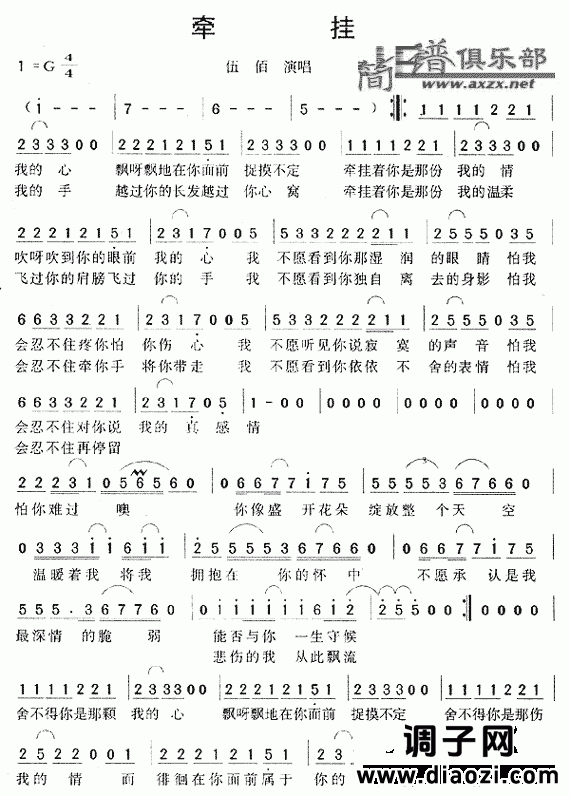 牵 挂
简谱俱乐部
www.axzx.net
1=G 4/4
伍 佰 演唱
( i - - - | 7 - - - | 6 - - - | 5 - - - ) |: 1 1 1 1 2 2 1 |
2 3 3 3 0 0 | 2 2 2 1 2 1 5 1 | 2 3 3 3 0 0 | 1 1 1 1 2 2 1 | 2 3 3 3 0 0 |
我的 心 飘呀飘地在你面前 捉摸不定 牵挂着你是那份 我的 情
我的 手 越过你的长发越过 你心 窝 牵挂着你是那份 我的温柔
2 2 2 1 2 1 5 1 | 2 3 1 7 0 0 5 | 3 5 3 3 2 2 2 1 1 | 2 5 5 5 0 3 5 |
吹呀吹到你的眼前 我的 心 我 不愿看到你那湿 润 的眼 睛 怕我
飞过你的肩膀飞过 你的 手 我 不愿看到你独自 离 去的身影 怕我
6 6 3 3 2 2 1 | 2 3 1 7 0 0 5 | 3 5 3 3 2 2 2 1 1 | 2 5 5 5 0 3 5 |
会忍不住疼你怕 你伤 心 我 不愿听见你说寂 寞 的声 音 怕我
会忍不住牵你手 将你带走 我 不愿看到你依依 不 舍的表情 怕我
6 6 3 3 2 2 1 | 2 3 1 7 0 5 | 1 - 0 0 | 0 0 0 0 | 0 0 0 0 | 0 0 0 0 |
会忍不住对你说 我的 真 感 情
会忍不住再停留
2 2 2 3 1 0 5 6 5 6 0 | 0 6 6 7 7 i 7 5 | 2 5 5 5 5 3 6 7 6 6 0 |
怕你难过 噢 你像盛 开花朵 绽放整 个天 空
0 3 3 3 i i 6 i i | 2 5 5 5 5 3 6 7 7 6 0 | 0 6 6 7 7 i 7 5 |
温暖着我 将我 拥抱在 你的 怀 中 不愿承 认是我
5 5 5 . 3 6 7 7 6 0 | 0 i i i i i i 6 i 2 | 2 5 5 0 0 :| 0 0 0 0 |
最深情 的脆 弱 能否与你 一生守候
悲伤的我 从此飘流
1 1 1 1 2 2 1 | 2 3 3 3 0 0 | 2 2 2 1 2 1 5 1 | 2 3 3 3 0 0 | 1 1 1 1 2 2 1 |
舍不得你是那颗 我的 心 飘呀飘地在你面前 捉摸不定 舍不得你是那伤
2 5 2 2 0 0 1 |
我的 情 而 徘徊在你面前属于 你的
调子网
www.diaozi.com